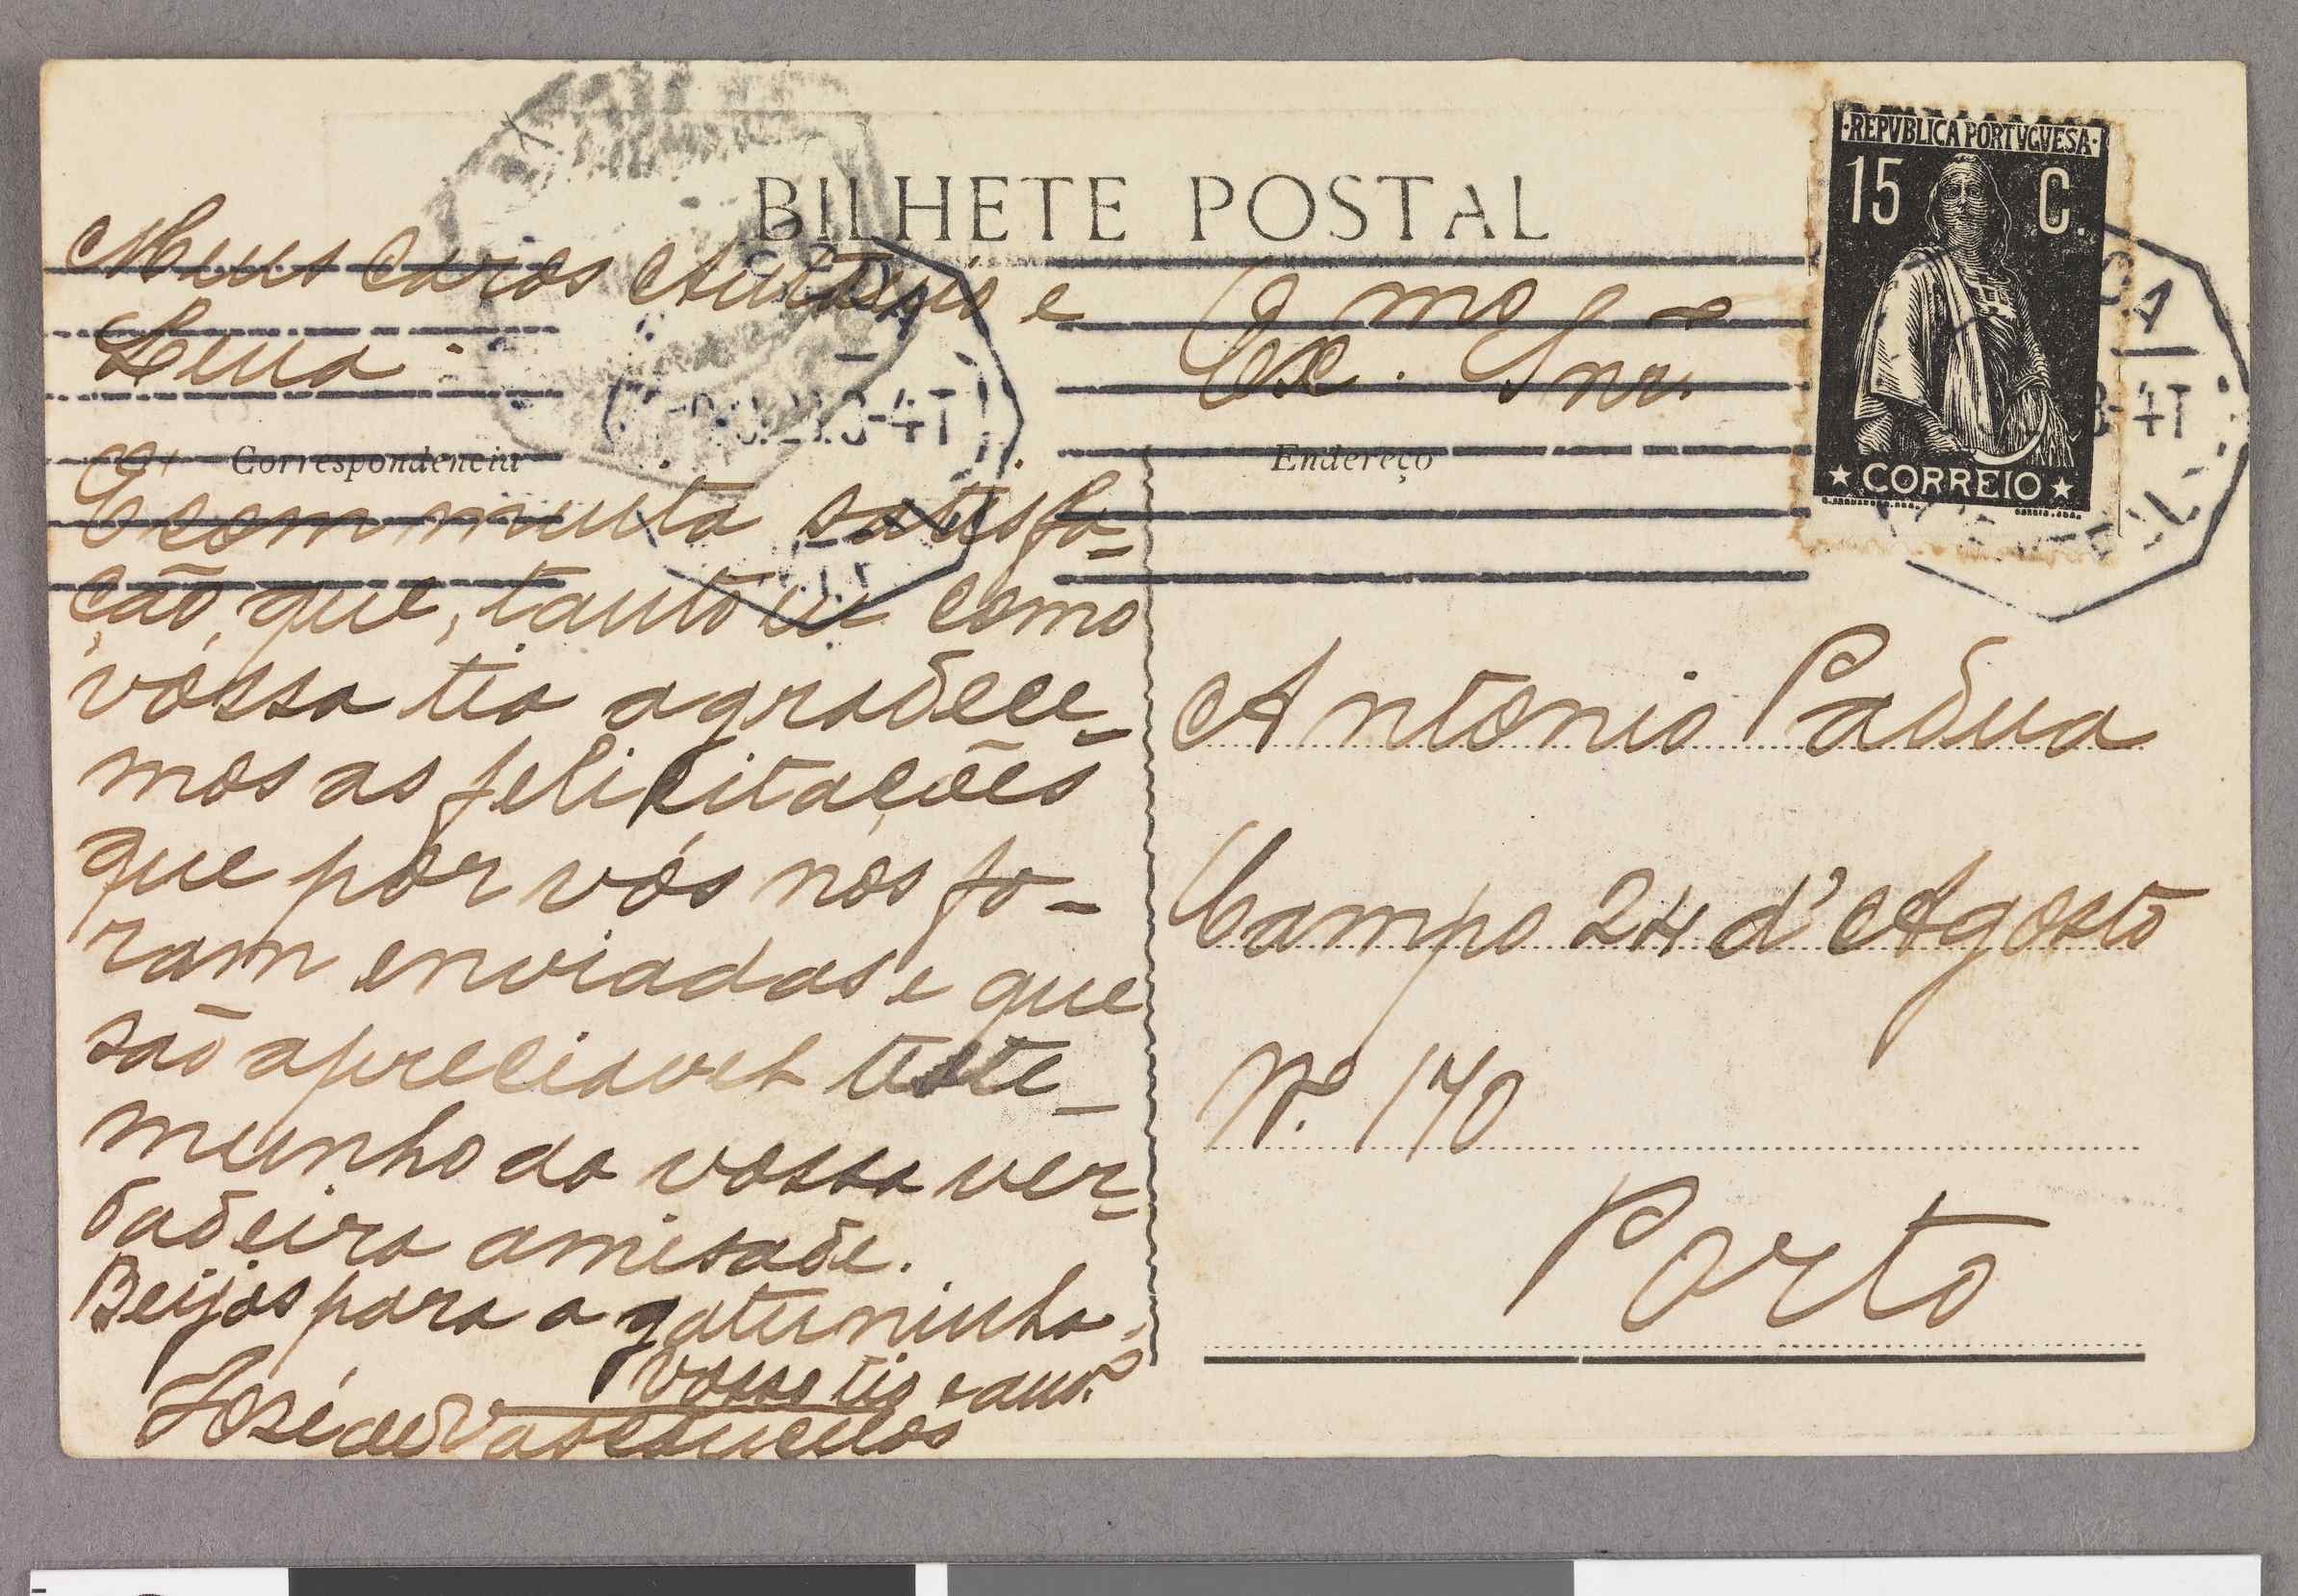 BILHETE POSTAL
REPVBLICA PORTVGVESA
15 C.
CORREIO
Meus caros Antonio e
Lena
Correspondencia
É com muita satisfa-
ção, que, tanto eu como
vossa tia agradece-
mos as felicitações
que por vós nos fo-
ram enviadas e que
são apreciavel teste-
munho da vossa ver-
dadeira amisade.
Beijos para a gatuninha.
vosso tio e am.º
José de Vasconcellos
Ex.mo Snr.
Endereço
Antonio Padua
Campo 24 d'Agosto
Nº. 170
Porto